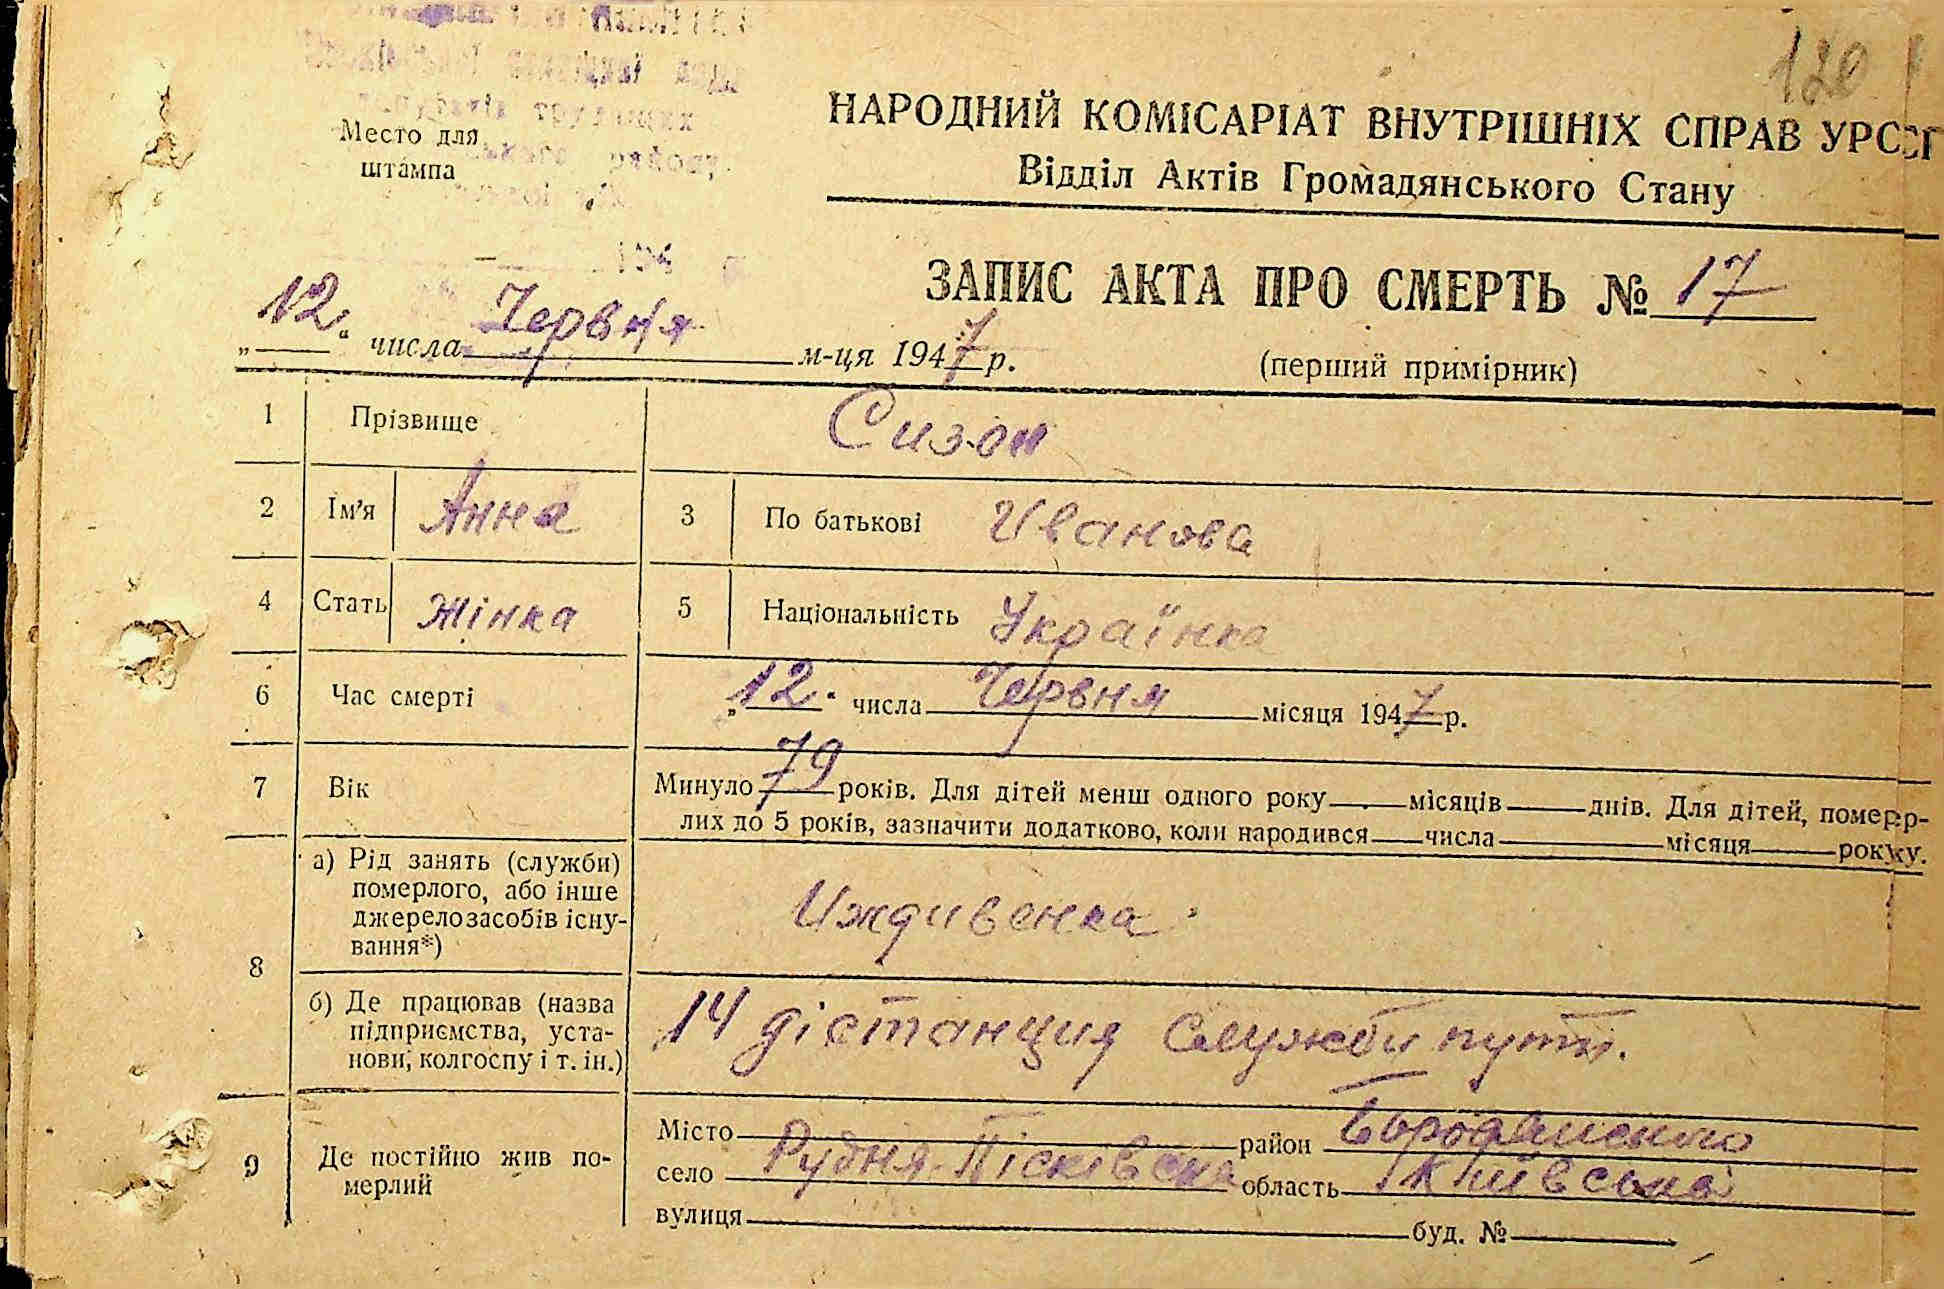 120
Место для
штампа
НАРОДНИЙ КОМІСАРІАТ ВНУТРІШНІХ СПРАВ УРСР
Відділ Актів Громадянського Стану
ЗАПИС АКТА ПРО СМЕРТЬ № 17
„12“ числа Червня м-ця 1947 р.
(перший примірник)
1 Прізвище Сизон
2 Ім’я Анна 3 По батькові Иванова
4 Стать жінка 5 Національність Українка
6 Час смерті „12“ числа Червня місяця 1947 р.
7 Вік Минуло 79 років. Для дітей менш одного року місяців днів. Для дітей, помер-
лих до 5 років, зазначити додатково, коли народився числа місяця року.
8 а) Рід занять (служби)
померлого, або інше
джерело засобів існу-
вання*)
Иждивенка
б) Де працював (назва
підприємства, уста-
нови, колгоспу і т. ін.)
14 дістанция Служби пути.
9 Де постійно жив по-
мерлий
Місто район Бородянського
село Рудня-Пісківська область Київська
вулиця буд. №